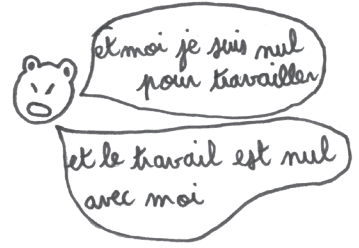 et moi je suis nul
pour travailler
et le travail est nul
avec moi